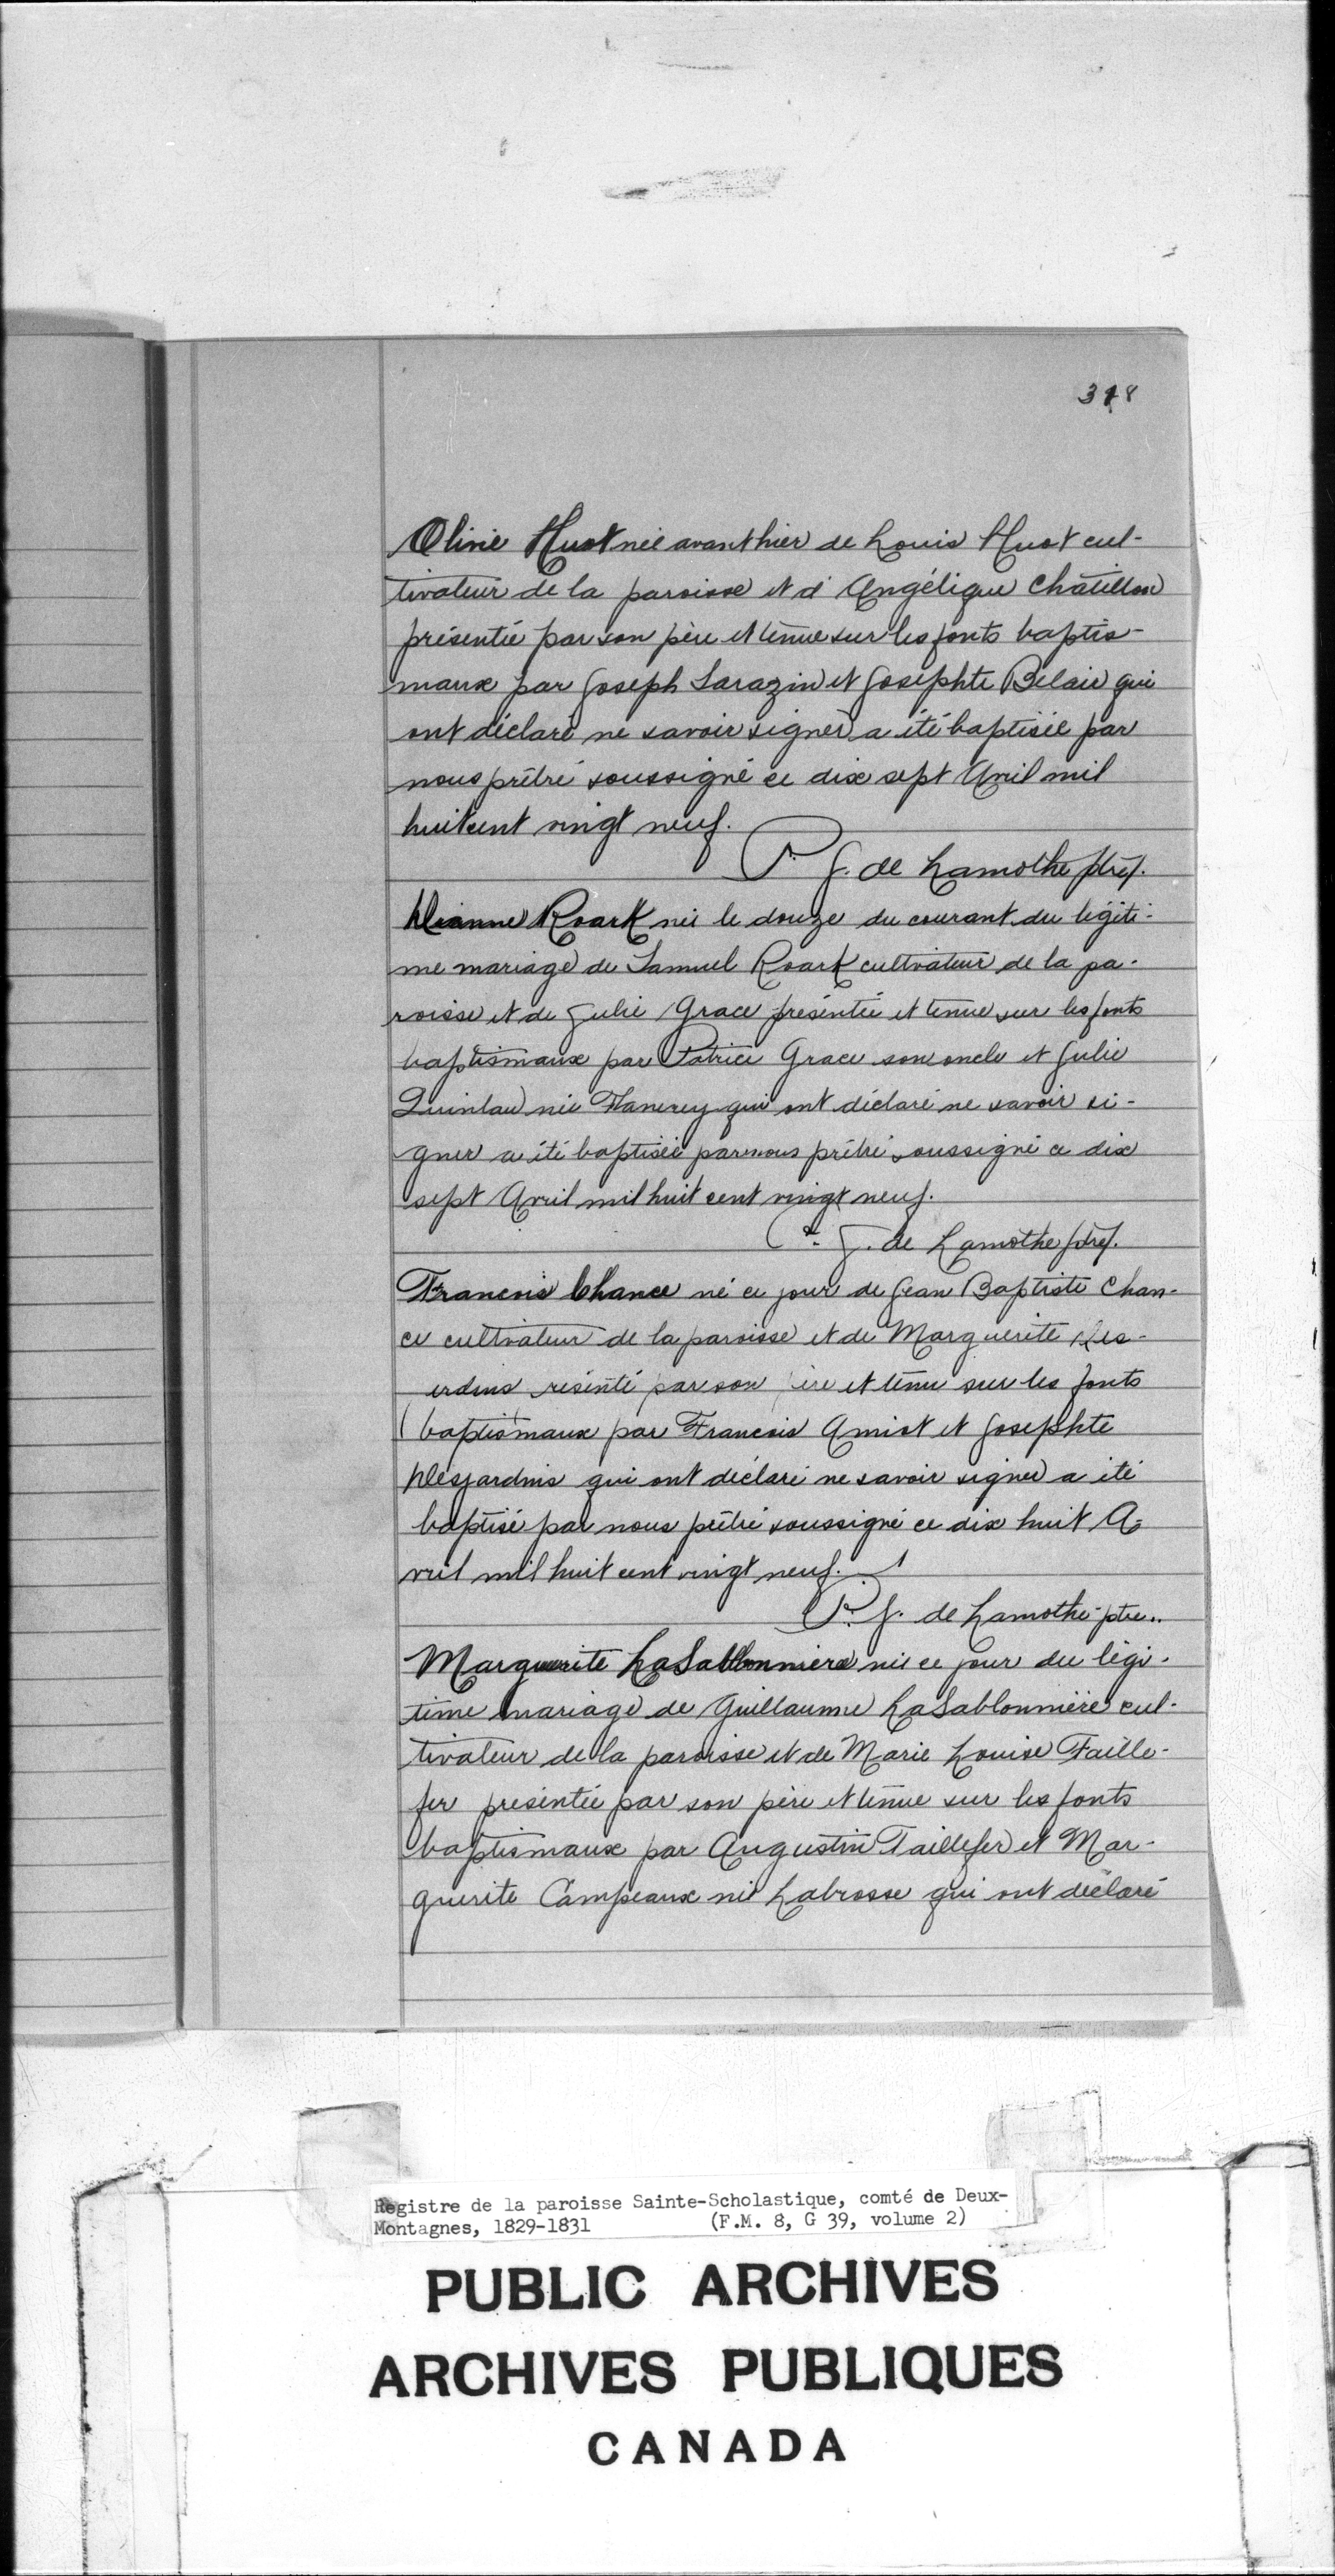 318
Olivie Huot née avanthier de Louis Huot cul-
tivateur de la paroisse et d'Angélique Chatillon
présentée par son père et tenue sur les fonts baptis-
maux par Joseph Sarazin et Josephte Belair qui
ont déclaré ne savoir signer a été baptisée par
nous prêtre soussigné ce dix sept Avril mil
huit cent vingt neuf.
P. J. de Lamothe ptre.
Dianne Roark née le douze du courant du légiti-
me mariage de Samuel Roark cultivateur de la pa-
roisse et de Julie Grace présentée et tenue sur les fonts
baptismaux par Patrice Grace son oncle et Julie
Quinlan née Flanerey qui ont déclaré ne savoir si-
gner a été baptisée par nous prêtre soussigné ce dix
sept Avril mil huit cent vingt neuf.
P. J. de Lamothe ptre.
Francois Chance né ce jour de Jean Baptiste Chan-
ce cultivateur de la paroisse et de Marguerite Des-
jardins présenté par son père et tenu sur les fonts
baptismaux par Francois Amiot et Josephte
Desjardins qui ont déclaré ne savoir signer a été
baptisé par nous prêtre soussigné ce dix huit A-
vril mil huit cent vingt neuf.
P. J. de Lamothe ptre..
Marguerite LaSablonnière née ce jour du légi-
time mariage de Guillaume LaSablonnière cul-
tivateur de la paroisse et de Marie Louise Taille-
fer présentée par son père et tenue sur les fonts
baptismaux par Augustin Taillefer et Mar-
guerite Campeaux née Labrosse qui ont déclaré
Registre de la paroisse Sainte-Scholastique, comté de Deux-
Montagnes, 1829-1831 (F.M. 8, G 39, volume 2)
PUBLIC ARCHIVES
ARCHIVES PUBLIQUES
CANADA